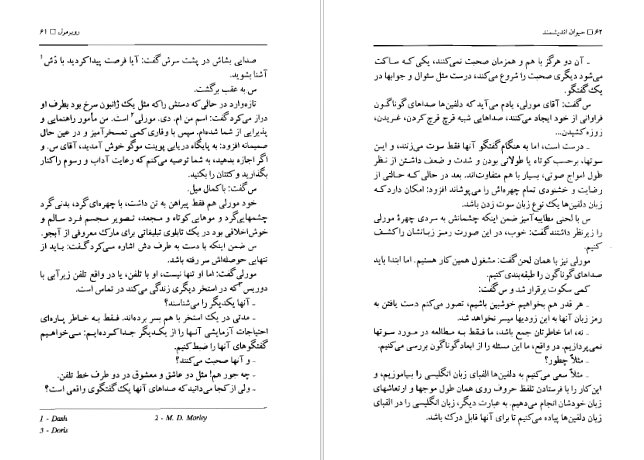 ۶۲ □ حیوان اندیشمند
ـ آن دو هرگز با هم و همزمان صحبت نمی‌کنند، یکی که ساکت
می‌شود دیگری صحبت را شروع می‌کند، درست مثل سئوال و جوابها در
یک گفتگو.
س گفت: آقای مورلی، یادم می‌آید که دلفین‌ها صداهای گوناگون
فراوانی از خود ایجاد می‌کنند، صداهایی شبیه قرچ قرچ کردن، غریدن،
زوزه کشیدن...
ـ درست است، اما به هنگام گفتگو آنها فقط سوت می‌زنند، و این
سوتها، برحسب کوتاه یا طولانی بودن و شدت و ضعف داشتن از نظر
طول امواج صوتی، بسیار با هم متفاوت‌اند. بعد در حالی که حالتی از
رضایت و خشنودی تمام چهره‌اش را می‌پوشاند افزود: امکان دارد که
زبان دلفین‌ها یک نوع زبان سوت زدن باشد.
س با لحنی مطایبه‌آمیز ضمن اینکه چشمانش به سردی چهرهٔ مورلی
را زیر نظر داشتند گفت: خوب، در این صورت رمز زبانشان را کشف
کنیم.
مورلی نیز با همان لحن گفت: مشغول همین کار هستیم. اما ابتدا باید
صداهای گوناگون را طبقه‌بندی کنیم.
کمی سکوت برقرار شد و س گفت:
ـ هر قدر هم بخواهیم خوشبین باشیم، تصور می‌کنم دست یافتن به
رمز زبان آنها به این زودیها میسر نخواهد شد.
ـ نه، اما خاطرتان جمع باشد، ما فقط به مطالعه در مورد سوتها
نمی‌پردازیم. در واقع، ما این مسئله را از ابعاد گوناگون بررسی می‌کنیم.
ـ مثلاً چطور؟
ـ مثلاً سعی می‌کنیم به دلفین‌ها الفبای زبان انگلیسی را بیاموزیم، و
این کار را با فرستادن تلفظ حروف روی همان طول موجها و ارتعاشهای
زبان خودشان انجام می‌دهیم. به عبارت دیگر، زبان انگلیسی را در الفبای
زبان دلفین‌ها پیاده می‌کنیم تا برای آنها قابل درک باشد.
روبر مرل □ ۶۱
صدایی بشاش در پشت سرش گفت: آیا فرصت پیدا کردید با دَش۱
آشنا بشوید.
س به عقب برگشت.
تازه‌وارد در حالی که دستش را که مثل یک ژانبون سرخ بود بطرف او
دراز می‌کرد گفت: اسم من ام. دی. مورلی۲ است. من مأمور راهنمایی و
پذیرایی از شما شده‌ام. سپس با وقاری کمی تمسخرآمیز و در عین حال
صمیمانه افزود: به پایگاه دریایی پوینت موگو خوش آمدید، آقای س. و
اگر اجازه بدهید، به شما توصیه می‌کنم که رعایت آداب و رسوم را کنار
بگذارید و کتتان را بکنید.
س گفت: با کمال میل.
خود مورلی هم فقط پیراهن به تن داشت، با چهره‌ای گرد، بدنی گرد
چشمهایی گرد و موهایی کوتاه و مجعد، تصویر مجسم فرد سالم و
خوش‌اخلاقی بود در یک تابلوی تبلیغاتی برای مارک معروفی از آبجو.
س ضمن اینکه با دست به طرف دش اشاره می‌کرد گفت: باید از
تنهایی حوصله‌اش سر رفته باشد.
مورلی گفت: اما او تنها نیست، او با تلفن، یا در واقع تلفن زیرآبی با
دوریس که در استخر دیگری زندگی می‌کند در تماس است.
ـ آنها یکدیگر را می‌شناسند؟
ـ مدتی در یک استخر با هم بسر برده‌اند. فقط به خاطر پاره‌ای
احتیاجات آزمایشی آنها را از یکدیگر جدا کرده‌ایم: می‌خواهیم
گفتگوهای آنها را ضبط کنیم.
ـ و آنها صحبت می‌کنند؟
ـ چه جور هم! مثل دو عاشق و معشوق در دو طرف خط تلفن.
ـ ولی از کجا می‌دانید که صداهای آنها یک گفتگوی واقعی است؟
1 - Dash 2 - M. D. Morley
3 - Doris